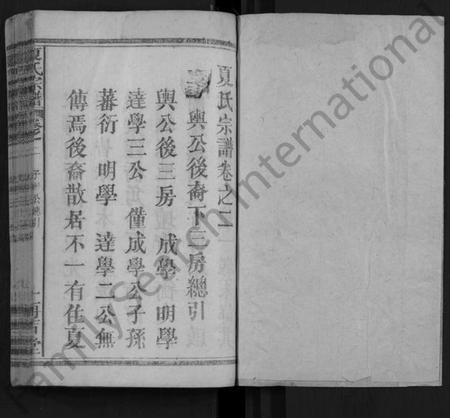 夏氏宗譜卷之二
輿公後裔下三房總引
輿公後三房 成學 明學
達學三公僅成學公子孫
蕃衍 明學 達學二公無
傳焉後裔散居不一有住夏
夏氏宗譜
FamilySearch International